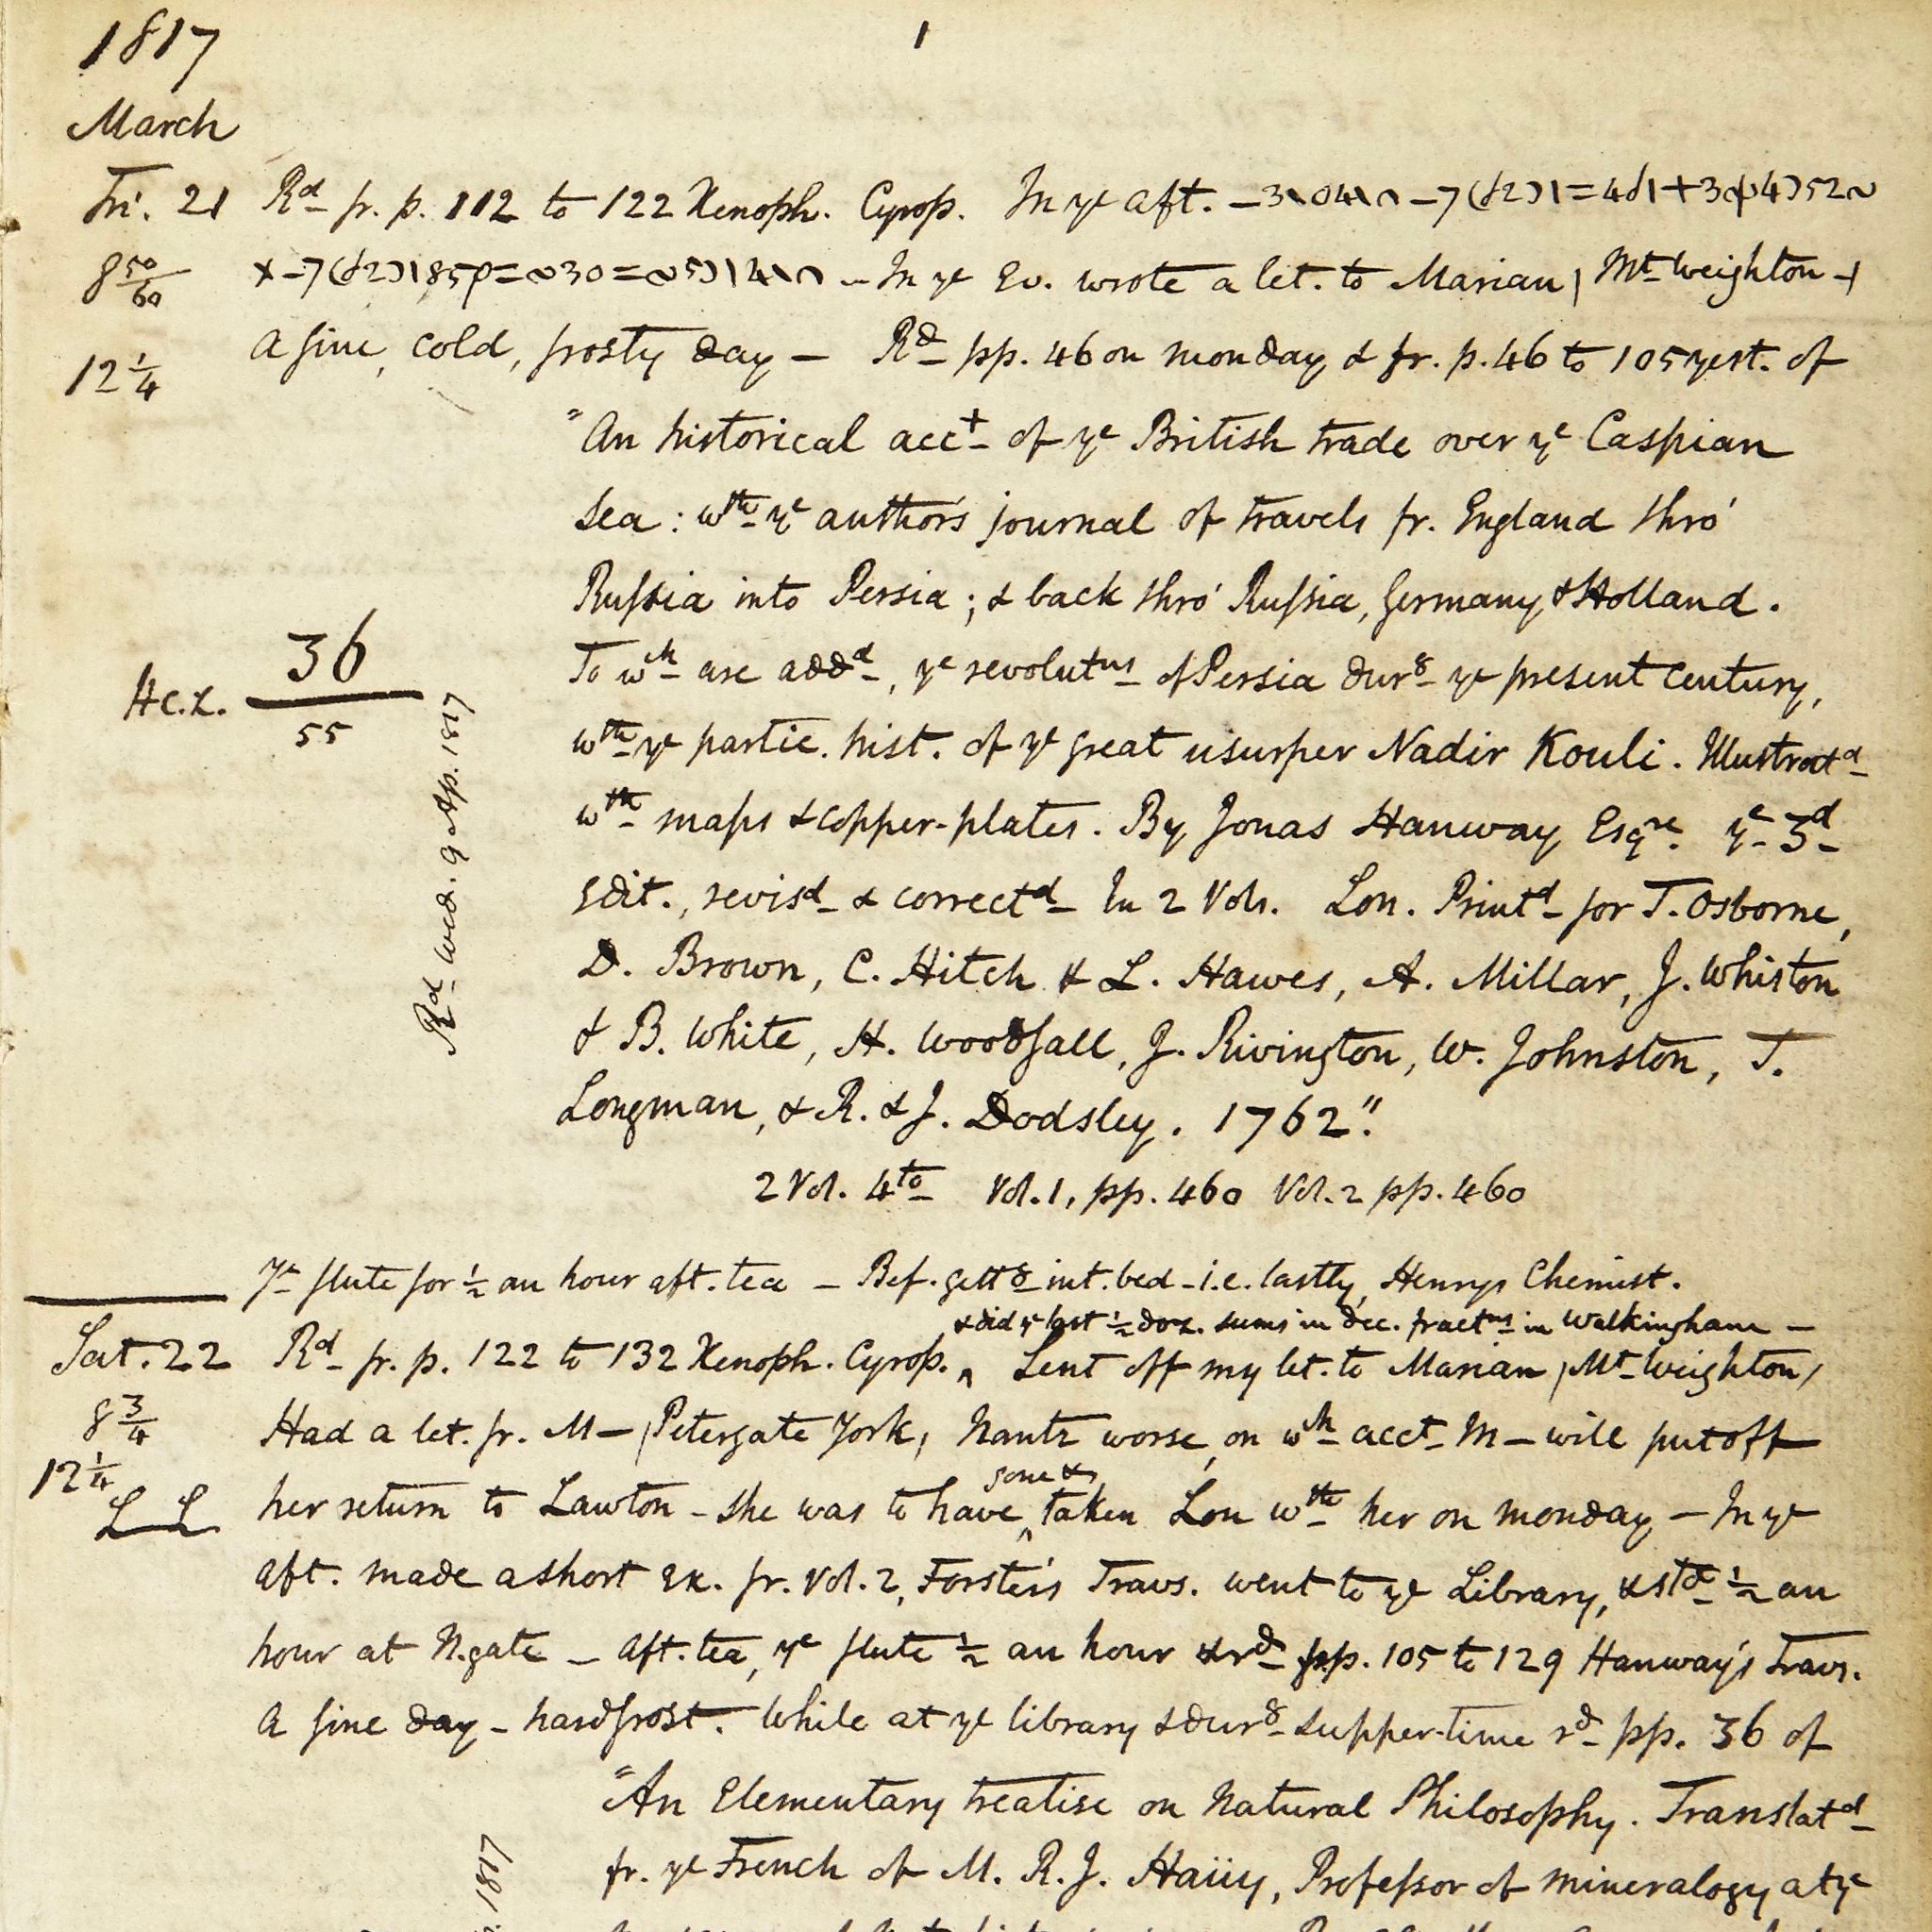 1817
1
March
Fri. 21 Rd fr. p. 112 to 122 Xenoph. Cyrop. In ye aft.
8 50/60 In ye Ev. wrote a let. to Marian, Mt Weighton +
12 1/4 A fine, cold, frosty day – Rd pp. 46 on monday & fr. p. 46 to 105 yest. of
"An historical acct of ye British trade over ye Caspian
Sea: wth ye author's journal of travels fr. England thro'
Russia into Persia; & back thro' Russia, Germany & Holland.
Hc.L. 36/55 To wh are addd, ye revolutns of Persia durg ye present century,
wth ye partic. hist. of ye great usurper Nadir Kouli. Illustratd
wth maps & copper-plates. By Jonas Hanway Esqre. ye 3d
Edit., revisd & correctd In 2 Vols. Lon. Printd for T. Osborne,
D. Brown, C. Hitch & L. Hawes, A. Millar, J. Whiston
& B. White, H. Woodfall, J. Rivington, W. Johnston, T.
Longman, & R. & J. Dodsley. 1762".
Rd Wed. 9 Ap. 1817
2 Vol. 4to Vol. 1, pp. 460 Vol. 2 pp. 460
Ye flute for 1/2 an hour aft. tea – Bef. gettg int. bed – i.e. lastly, Henrys Chemist.
& did ye last 1/2 doz. sums in dec. fractns in Walkingham –
Sat. 22 Rd fr. p. 122 to 132 Xenoph. Cyrop. ^ Sent off my let. to Marian, Mt Weighton,
8 3/4 Had a let. fr. M–, Petergate York, Nantz worse, on wh acct M– will put off
gone &
12 1/4 her return to Lawton – She was to have ^ taken Lou wth her on monday – In ye
L L
aft. made a short Ex. fr. Vol. 2, Forster's Travs. went to ye Library, & std 1/2 an
hour at N.gate – Aft. tea, ye flute 1/2 an hour & rd pp. 105 to 129 Hanway's Travs.
A fine day – hard frost. While at ye library & durg supper-time rd pp. 36 of
"An Elementary treatise on Natural Philosophy. Translatd
fr. ye French of M. R. J. Haüy, Professor of mineralogy at ye
1817